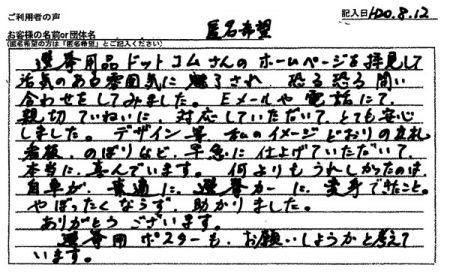 ご利用者の声
記入日 H20.8.12
お客様の名前or団体名 匿名希望
(匿名希望の方は「匿名希望」とご記入ください)
選挙用品ドットコムさんのホームページを拝見して
活気のある雰囲気に魅了され 恐る恐る問い
合わせをしてみました。Eメールや電話にて、
親切ていねいに、対応していただいて、とても安心
しました。デザイン等 私のイメージどおりの立札
看板、のぼりなど、早急に仕上げていただいて、
本当に、喜んでいます。何よりもうれしかったのは、
自車が、普通に、選挙カーに、変身できたこと。
やぼったくならず、助かりました。
ありがとうございます。
選挙用ポスターも、お願いしようかと考えて
います。